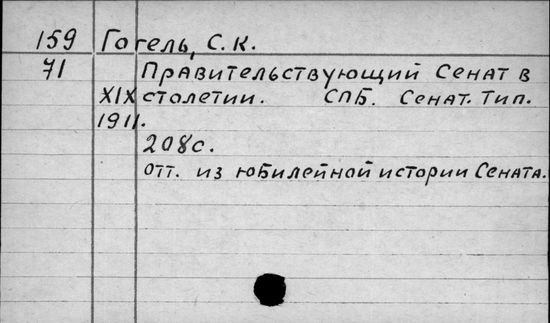 159 Гогель, С. К.
71 Правительствующий Сенат в
XIX столетии. СПБ. Сенат. Тип.
1911.
208с.
отт. из юбилейной истории Сената.